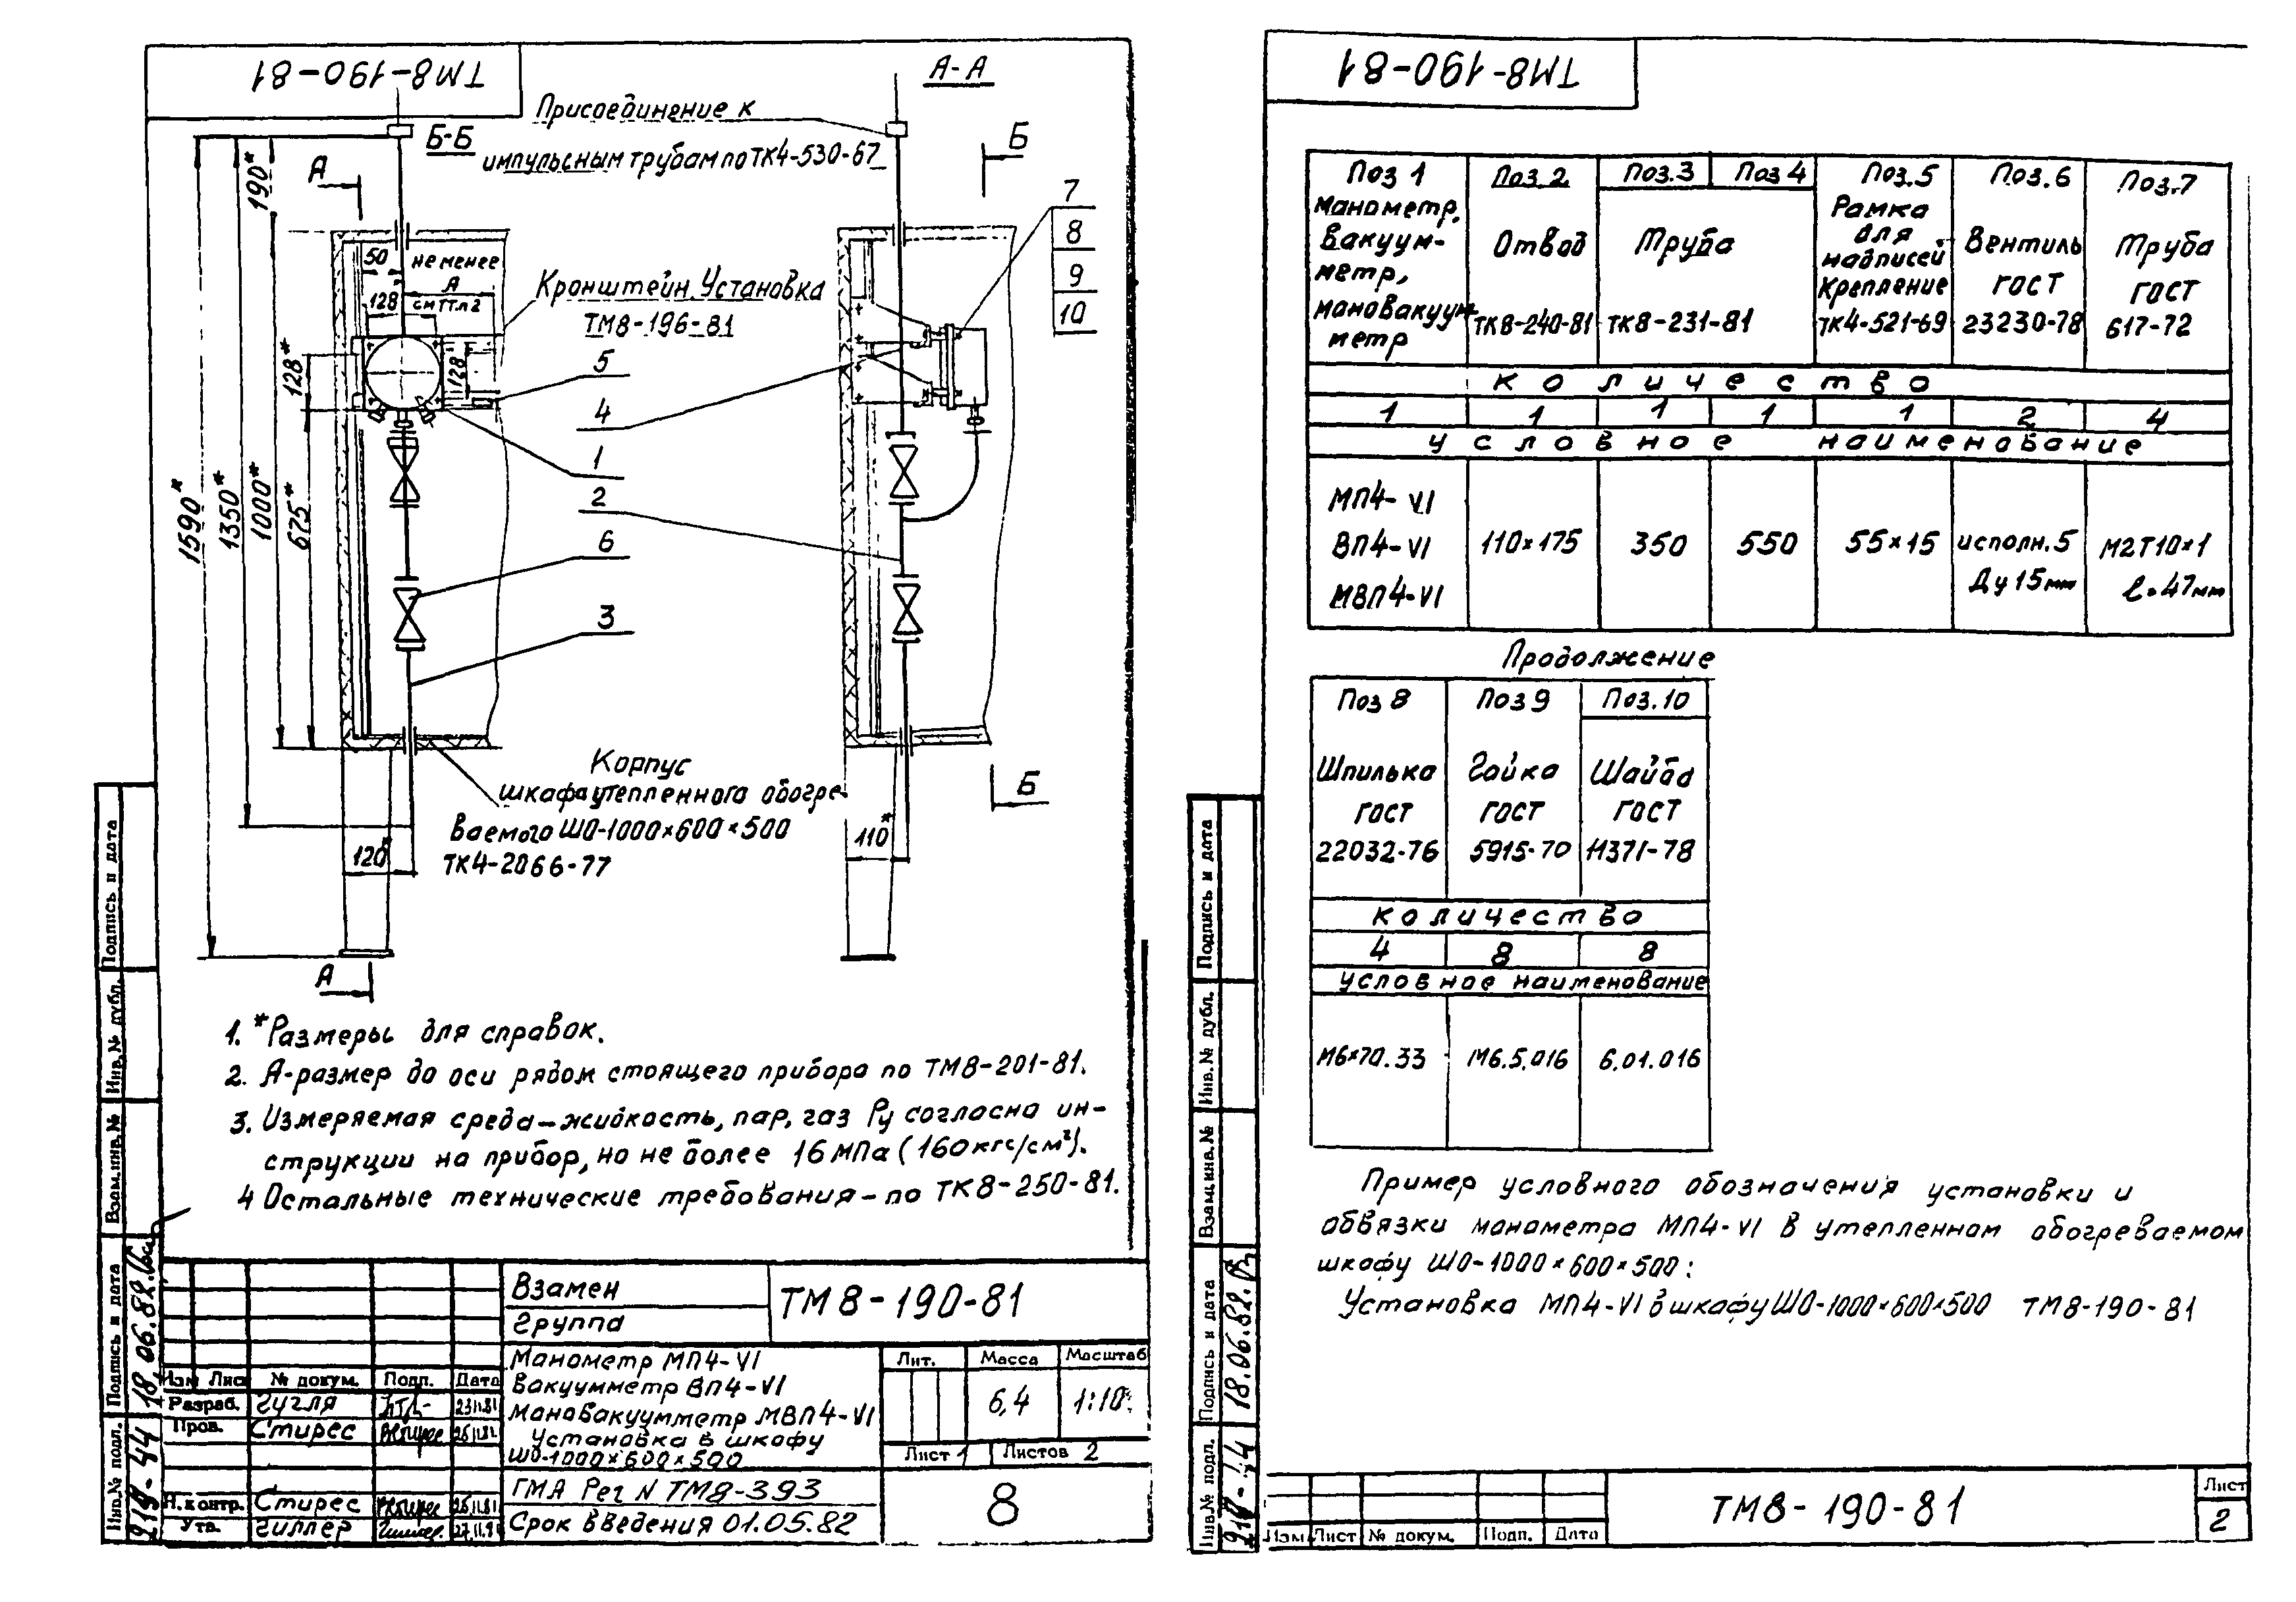 ТМ8-190-81
А-А
Присоединение к
импульсным трубам по ТК4-530-67
Б-Б
А
Б
190*
7
8
9
10
50
не менее
А
см ТТ.п2
128
Кронштейн. Установка
ТМ8-196-81
128*
128
5
4
1
2
6
3
1590*
1350*
1000*
675*
Корпус
шкафа утепленного обогре-
ваемого ШО-1000×600×500
ТК4-2066-77
Б
120*
110*
А
1. *Размеры для справок.
2. А-размер до оси рядом стоящего прибора по ТМ8-201-81.
3. Измеряемая среда-жидкость, пар, газ Ру согласно ин-
струкции на прибор, но не более 16 МПа (160 кгс/см²).
4 Остальные технические требования-по ТК8-250-81.
Взамен
Группа
ТМ8-190-81
Манометр МП4-VI
Вакуумметр ВП4-VI
Мановакуумметр МВП4-VI
Установка в шкафу
ШО-1000×600×500
Лит. Масса Масштаб
6,4 1:10
Лист 1 Листов 2
Изм Лис № докум. Подп. Дата
Разраб. Гугля 23.11.81
Пров. Стирес
Н.контр. Стирес 26.11.81
Утв. Гиллер
ГМА Рег N ТМ8-393
Срок введения 01.05.82
8
Подпись и дата
Инв.№ дубл.
Взам.инв.№
Подпись и дата 18.06.82.
Инв.№ подл.
ТМ8-190-81
Поз 1 Поз 2 Поз.3 Поз 4 Поз.5 Поз.6 Поз.7
Манометр,
вакуум-
метр,
мановакуум-
метр
Отвод
ТК8-240-81
Труба
ТК8-231-81
Рамка
для
надписей
Крепление
ТК4-521-69
Вентиль
ГОСТ
23230-78
Труба
ГОСТ
617-72
Количество
1 1 1 1 1 2 4
Условное наименование
МП4-VI
ВП4-VI
МВП4-VI
110×175
350
550
55×15
исполн.5
Ду 15мм
М2Т10×1
ℓ=47мм
Продолжение
Поз 8 Поз 9 Поз.10
Шпилька Гайка Шайба
ГОСТ ГОСТ ГОСТ
22032-76 5915-70 11371-78
Количество
4 8 8
Условное наименование
М6×70.33 М6.5.016 6.01.016
Пример условного обозначения установки и
обвязки манометра МП4-VI в утепленном обогреваемом
шкафу ШО-1000×600×500:
Установка МП4-VI в шкафу ШО-1000×600×500 ТМ8-190-81
Подпись и дата
Инв.№ дубл.
Взам.инв.№
Подпись и дата 18.06.82.
Инв.№ подл.
Изм Лист № докум. Подп. Дата
ТМ8-190-81
Лист
2